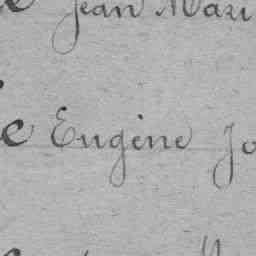 Jean Mari
Eugène Jo